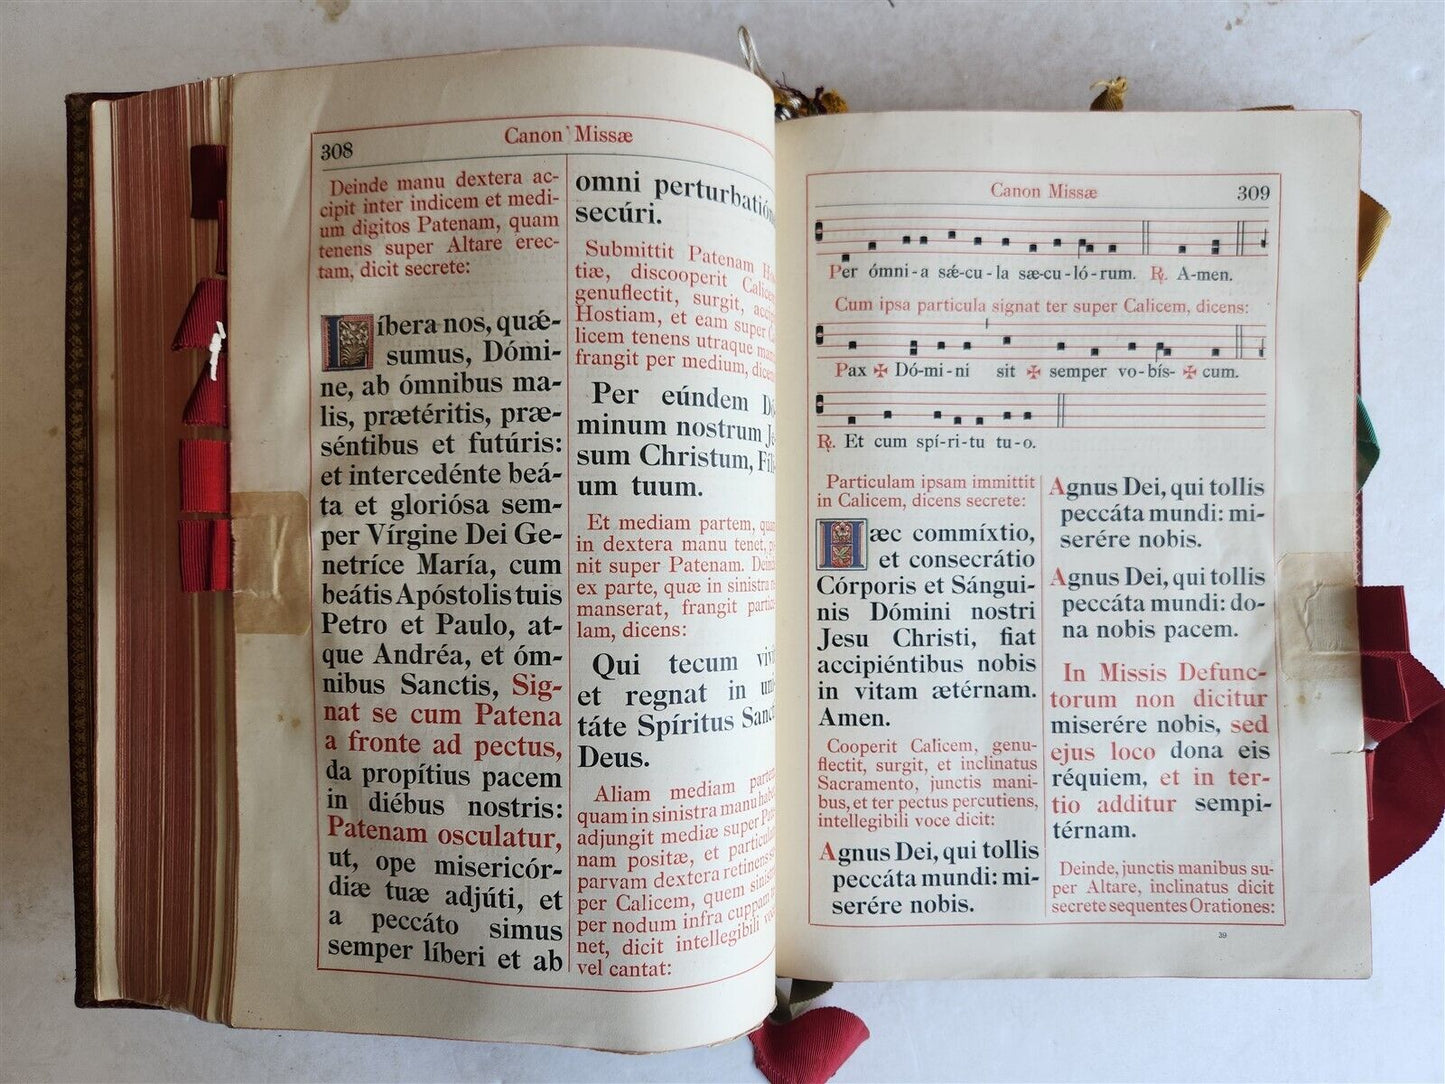 308
Canon Missæ
Deinde manu dextera ac-
cipit inter indicem et medi-
um digitos Patenam, quam
tenens super Altare erec-
tam, dicit secrete:
Líbera nos, quǽ-
sumus, Dómi-
ne, ab ómnibus ma-
lis, prætéritis, præ-
séntibus et futúris:
et intercedénte beá-
ta et gloriósa sem-
per Vírgine Dei Ge-
netríce María, cum
beátis Apóstolis tuis
Petro et Paulo, at-
que Andréa, et óm-
nibus Sanctis, Sig-
nat se cum Patena
a fronte ad pectus,
da propítius pacem
in diébus nostris:
Patenam osculatur,
ut, ope misericór-
diæ tuæ adjúti, et
a peccáto simus
semper líberi et ab
omni perturbatió
secúri.
Submittit Patenam Hos
tiæ, discooperit Calicem,
genuflectit, surgit, accip
Hostiam, et eam super C
licem tenens utraque man
frangit per medium, dicen
Per eúndem Dó
minum nostrum Je
sum Christum, Fíli
um tuum.
Et mediam partem, quam
in dextera manu tenet, p
nit super Patenam. Deind
ex parte, quæ in sinistra re
manserat, frangit partic
lam, dicens:
Qui tecum vivi
et regnat in uni
táte Spíritus Sanct
Deus.
Aliam mediam partem
quam in sinistra manu habet
adjungit mediæ super Pat
nam positæ, et particulam
parvam dextera retinens s
per Calicem, quem sinistr
per nodum infra cuppam
net, dicit intellegibili voce
vel cantat:
Canon Missæ
309
Per ómni-a sǽ-cu-la sæ-cu-ló-rum. ℟. A-men.
Cum ipsa particula signat ter super Calicem, dicens:
Pax ✠ Dó-mi-ni sit ✠ semper vo-bís- ✠ cum.
℟. Et cum spí-ri-tu tu-o.
Particulam ipsam immittit
in Calicem, dicens secrete:
Hæc commíxtio,
et consecrátio
Córporis et Sángui-
nis Dómini nostri
Jesu Christi, fiat
accipiéntibus nobis
in vitam ætérnam.
Amen.
Cooperit Calicem, genu-
flectit, surgit, et inclinatus
Sacramento, junctis mani-
bus, et ter pectus percutiens,
intellegibili voce dicit:
Agnus Dei, qui tollis
peccáta mundi: mi-
serére nobis.
Agnus Dei, qui tollis
peccáta mundi: mi-
serére nobis.
Agnus Dei, qui tollis
peccáta mundi: do-
na nobis pacem.
In Missis Defunc-
torum non dicitur
miserére nobis, sed
ejus loco dona eis
réquiem, et in ter-
tio additur sempi-
térnam.
Deinde, junctis manibus su-
per Altare, inclinatus dicit
secrete sequentes Orationes:
39